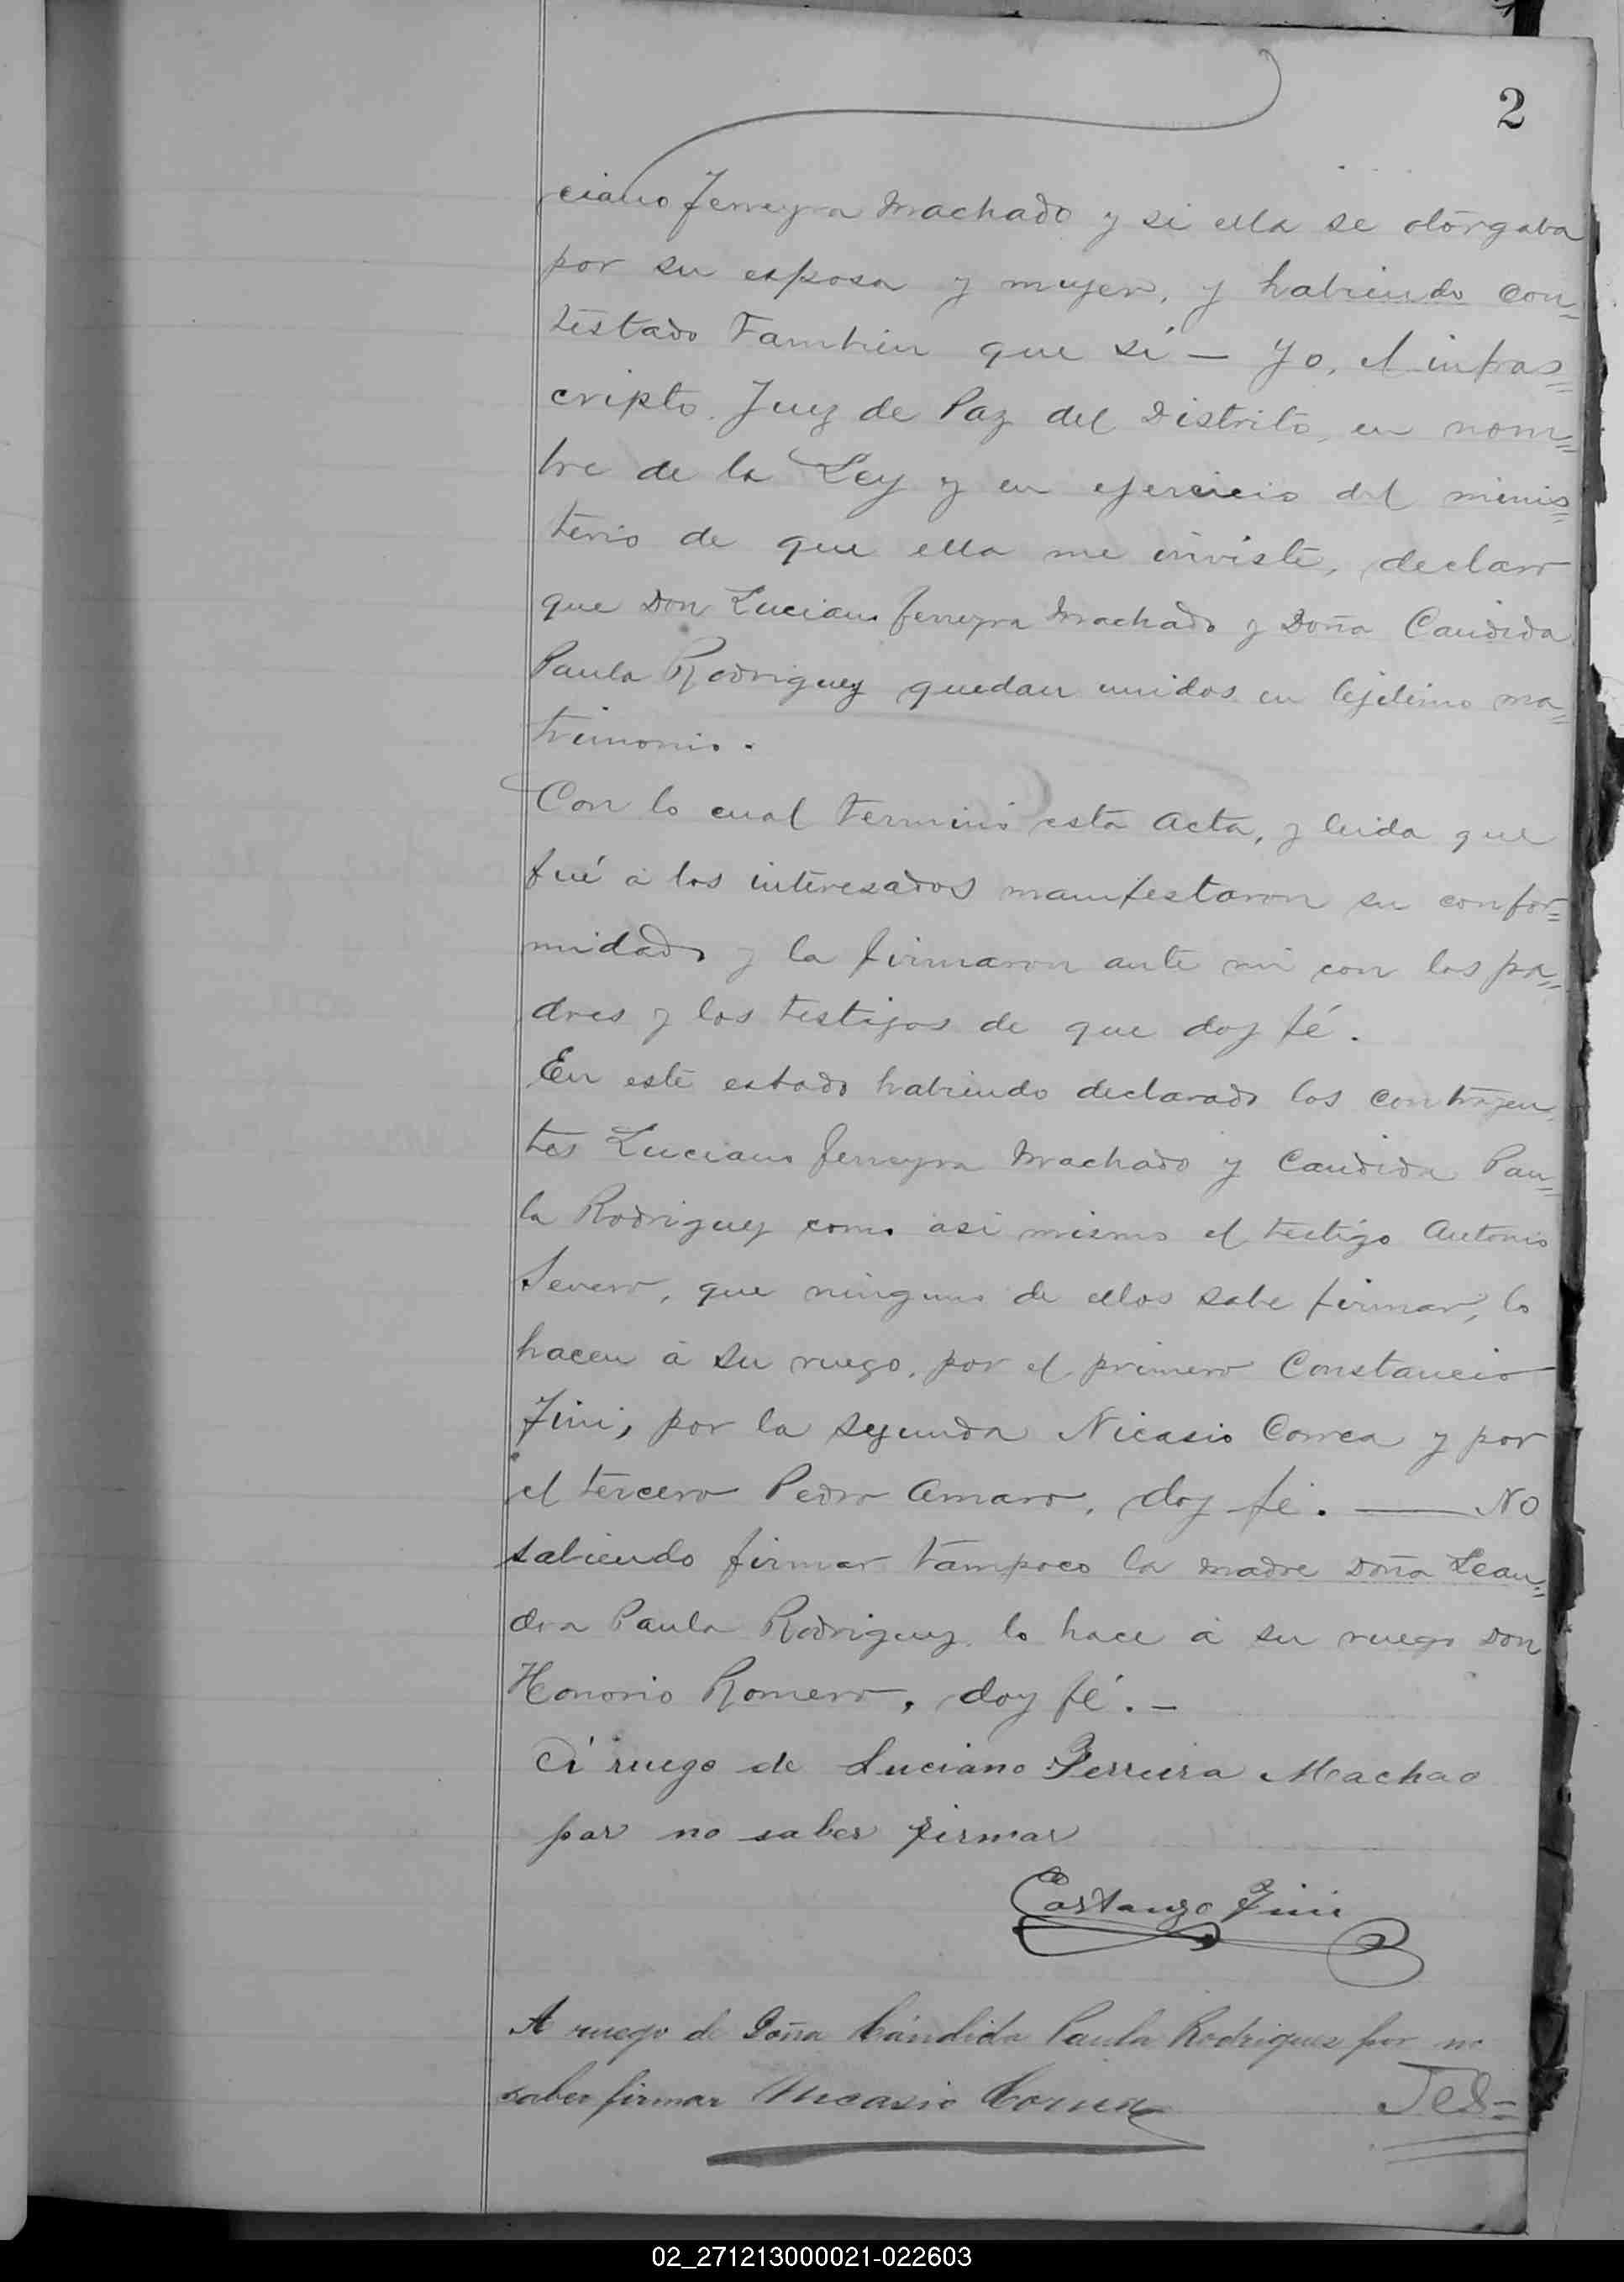 2
ciano Ferreyra Machado y si ella se otorgaba
por su esposa y mujer, y habiendo con=
testado tambien que sí — Yo, el infras=
cripto Juez de Paz del Distrito, en nom=
bre de la Ley y en ejercicio del minis=
terio de que ella me inviste, declaro
que Don Luciano Ferreyra Machado y Doña Candida
Paula Rodriguez quedan unidos en lejitimo ma=
trimonio.
Con lo cual terminó esta Acta, y leida que
fué á los interesados manifestaron su confor=
midad y la firmaron ante mi con los pa=
dres y los testigos de que doy fé.
En este estado habiendo declarado los contrayen
tes Luciano Ferreyra Machado y Candida Pau=
la Rodriguez como asi mismo el testigo Antonio
Severo, que ninguno de ellos sabe firmar, lo
hacen á su ruego, por el primero Constancio
Fini, por la segunda Nicasio Correa y por
el tercero Pedro Amaro, doy fé. — No
sabiendo firmar tampoco la madre Doña Lean=
dra Paula Rodriguez lo hace á su ruego Don
Honorio Romero, doy fé. —
A ruego de Luciano Ferreira Machao
par no saber firmar
Costanzo Fini
A ruego de Doña Cándida Paula Rodriguez por no
saber firmar Nicasio Correa
Tes=
02_271213000021-022603